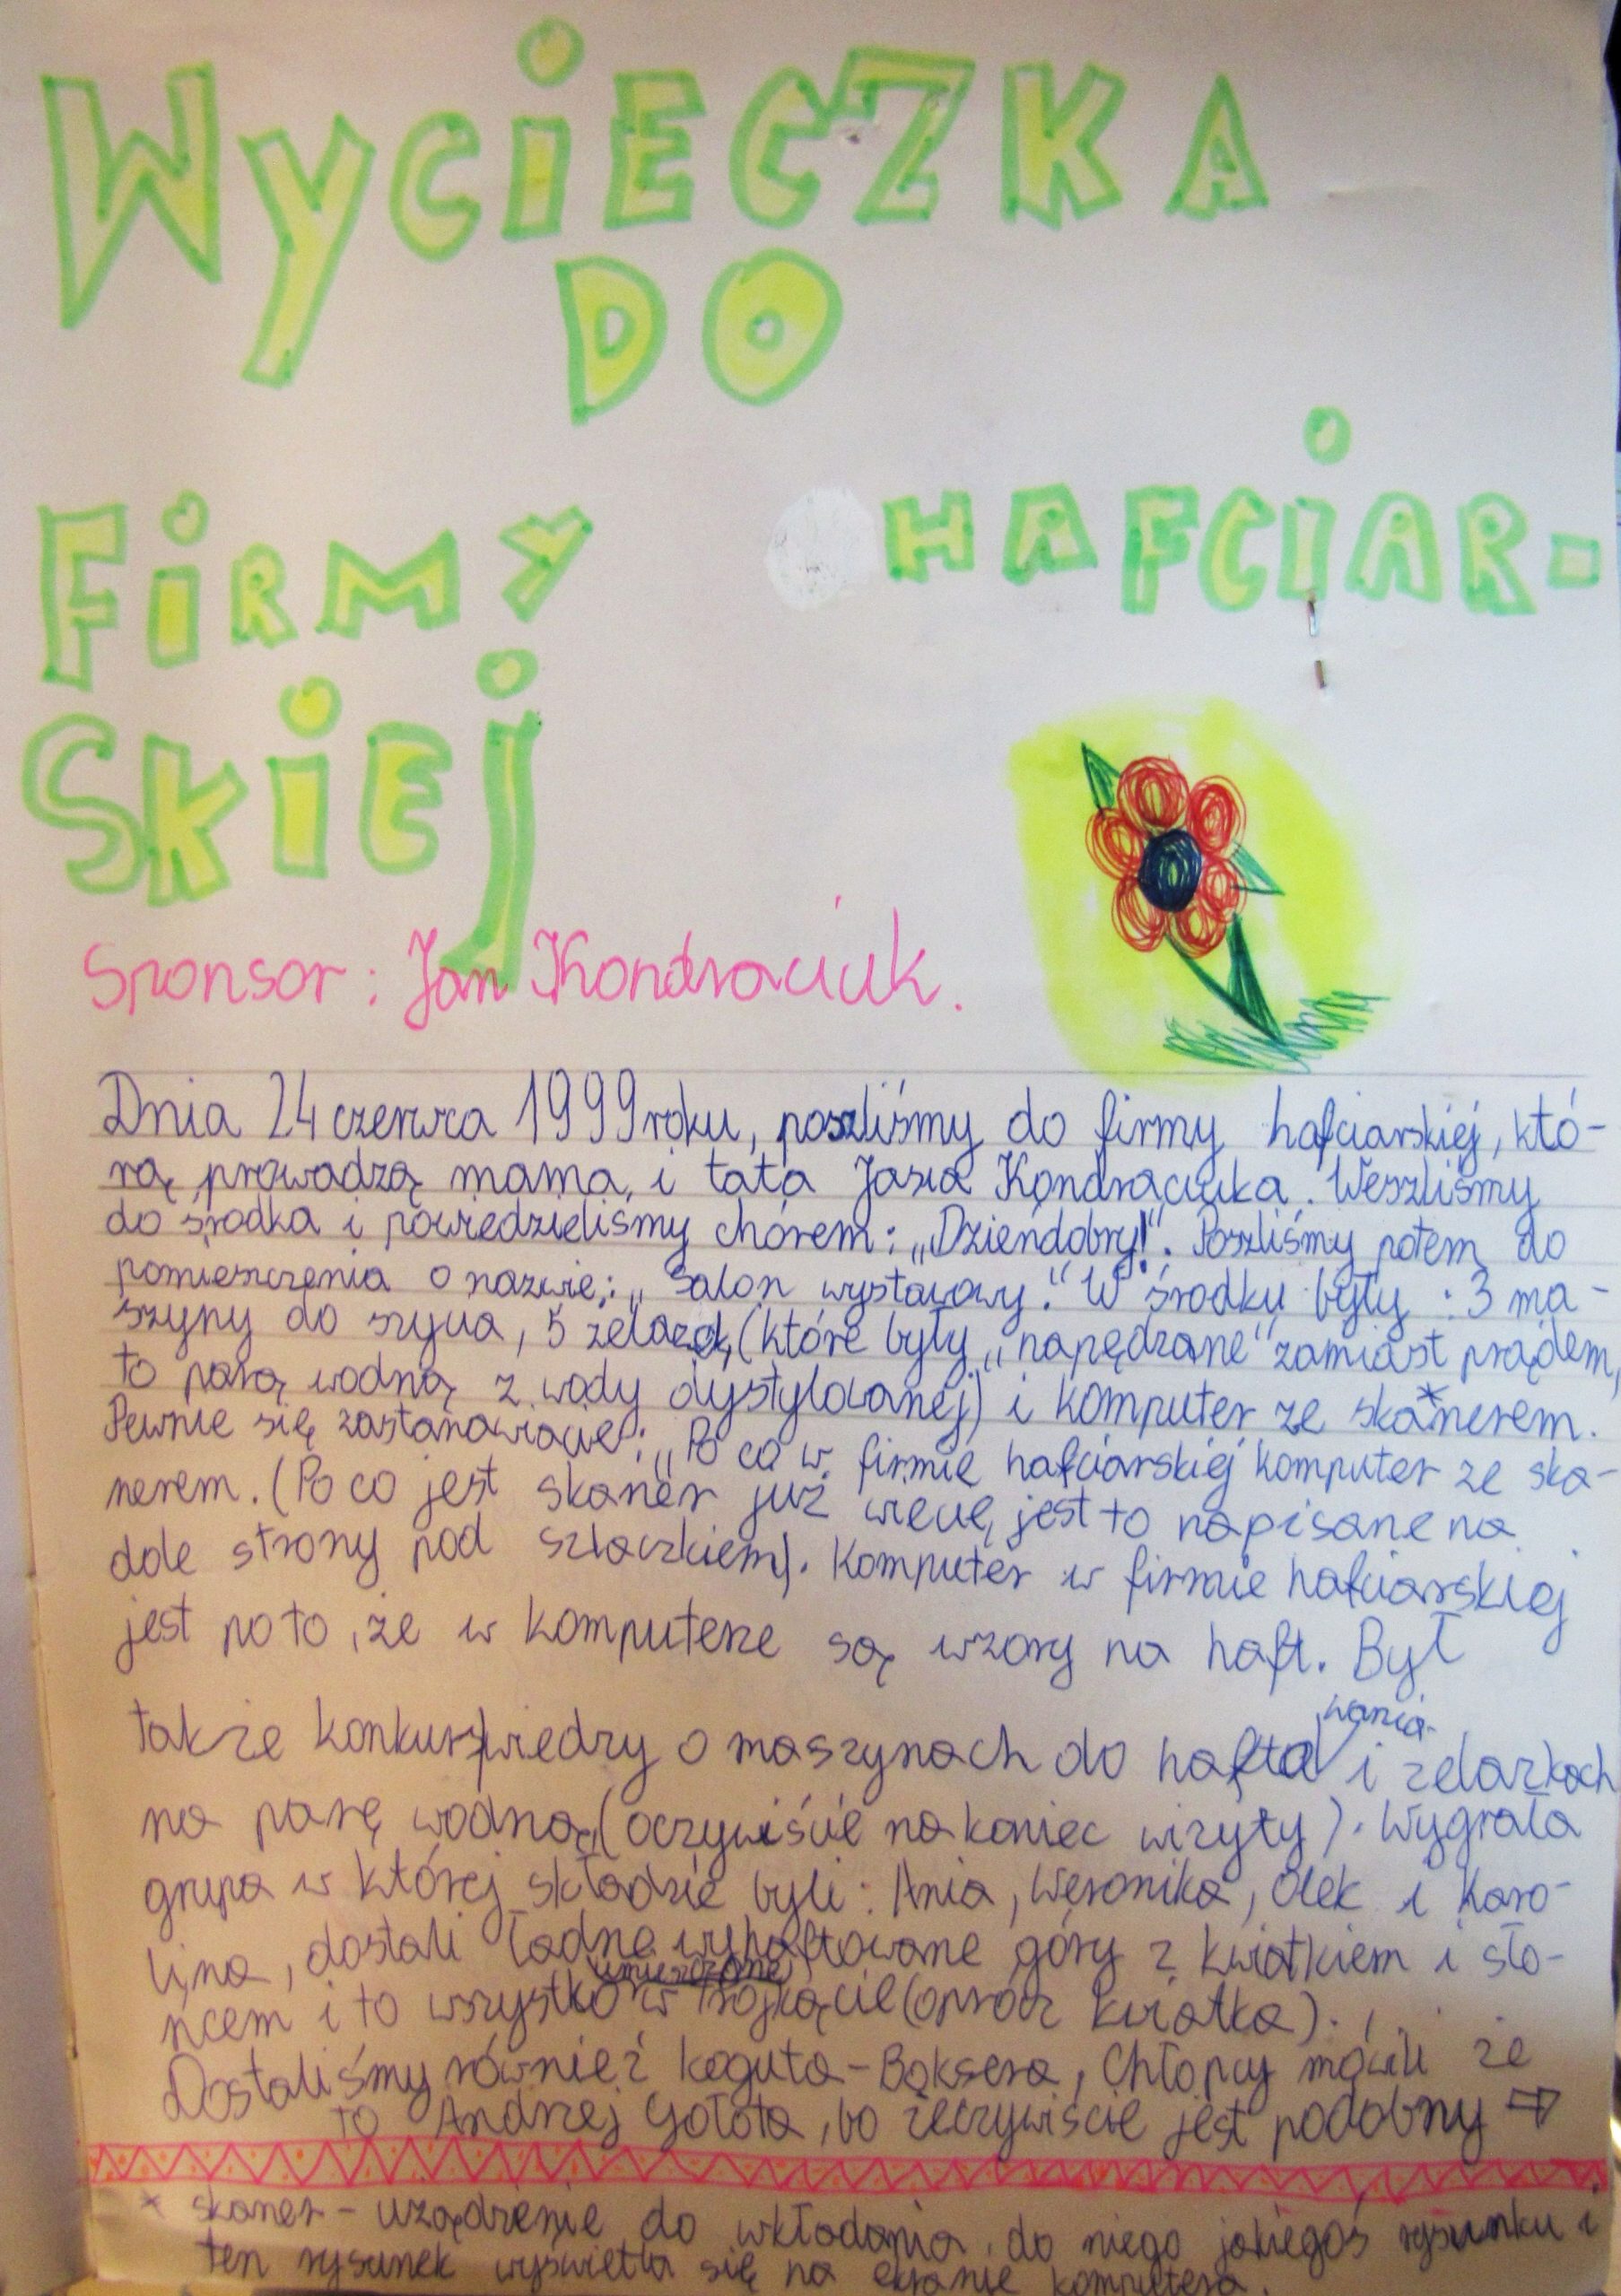 WYCiECZKA
DO
FiRMY HAFCiAR-
SKiEj
Sponsor: Jan Kondraciuk.
Dnia 24 czerwca 1999 roku, poszliśmy do firmy hafciarskiej, któ-
rą prowadzą mama, i tata Jasia Kondraciuka. Weszliśmy
do środka i powiedzieliśmy chórem: „Dzieńdobry!". Poszliśmy potem do
pomieszczenia o nazwie: „Salon wystawowy." W środku były: 3 ma-
szyny do szycia, 5 żelazek, (które były „napędzane" zamiast prądem,
to parą wodną z wody dystylowanej) i komputer ze ska*nerem.
Pewnie się zastanawiacie: „Po co w firmie hafciarskiej komputer ze ska-
nerem. (Po co jest skaner już wiecie, jest to napisane na
dole strony pod szlaczkiem). Komputer w firmie hafciarskiej
jest po to, że w komputerze są wzory na haft. Był
także konkurs wiedzy o maszynach do haftowania i żelazkach
na parę wodną, (oczywiście na koniec wizyty). Wygrała
grupa w której składzie byli: Ania, Weronika, Olek i Karo-
lina, dostali ładne wyhaftowane góry z kwiatkiem i sło-
ńcem i to wszystko umieszczone w trójkącie (oprócz kwiatka).
Dostaliśmy również koguta-Boksera, Chłopcy mówili że
to Andrzej Gołota, bo rzeczywiście jest podobny ⇨
* skaner - urządzenie do wkładania, do niego jakiegoś rysunku i
ten rysunek wyświetla się na ekranie komputera.